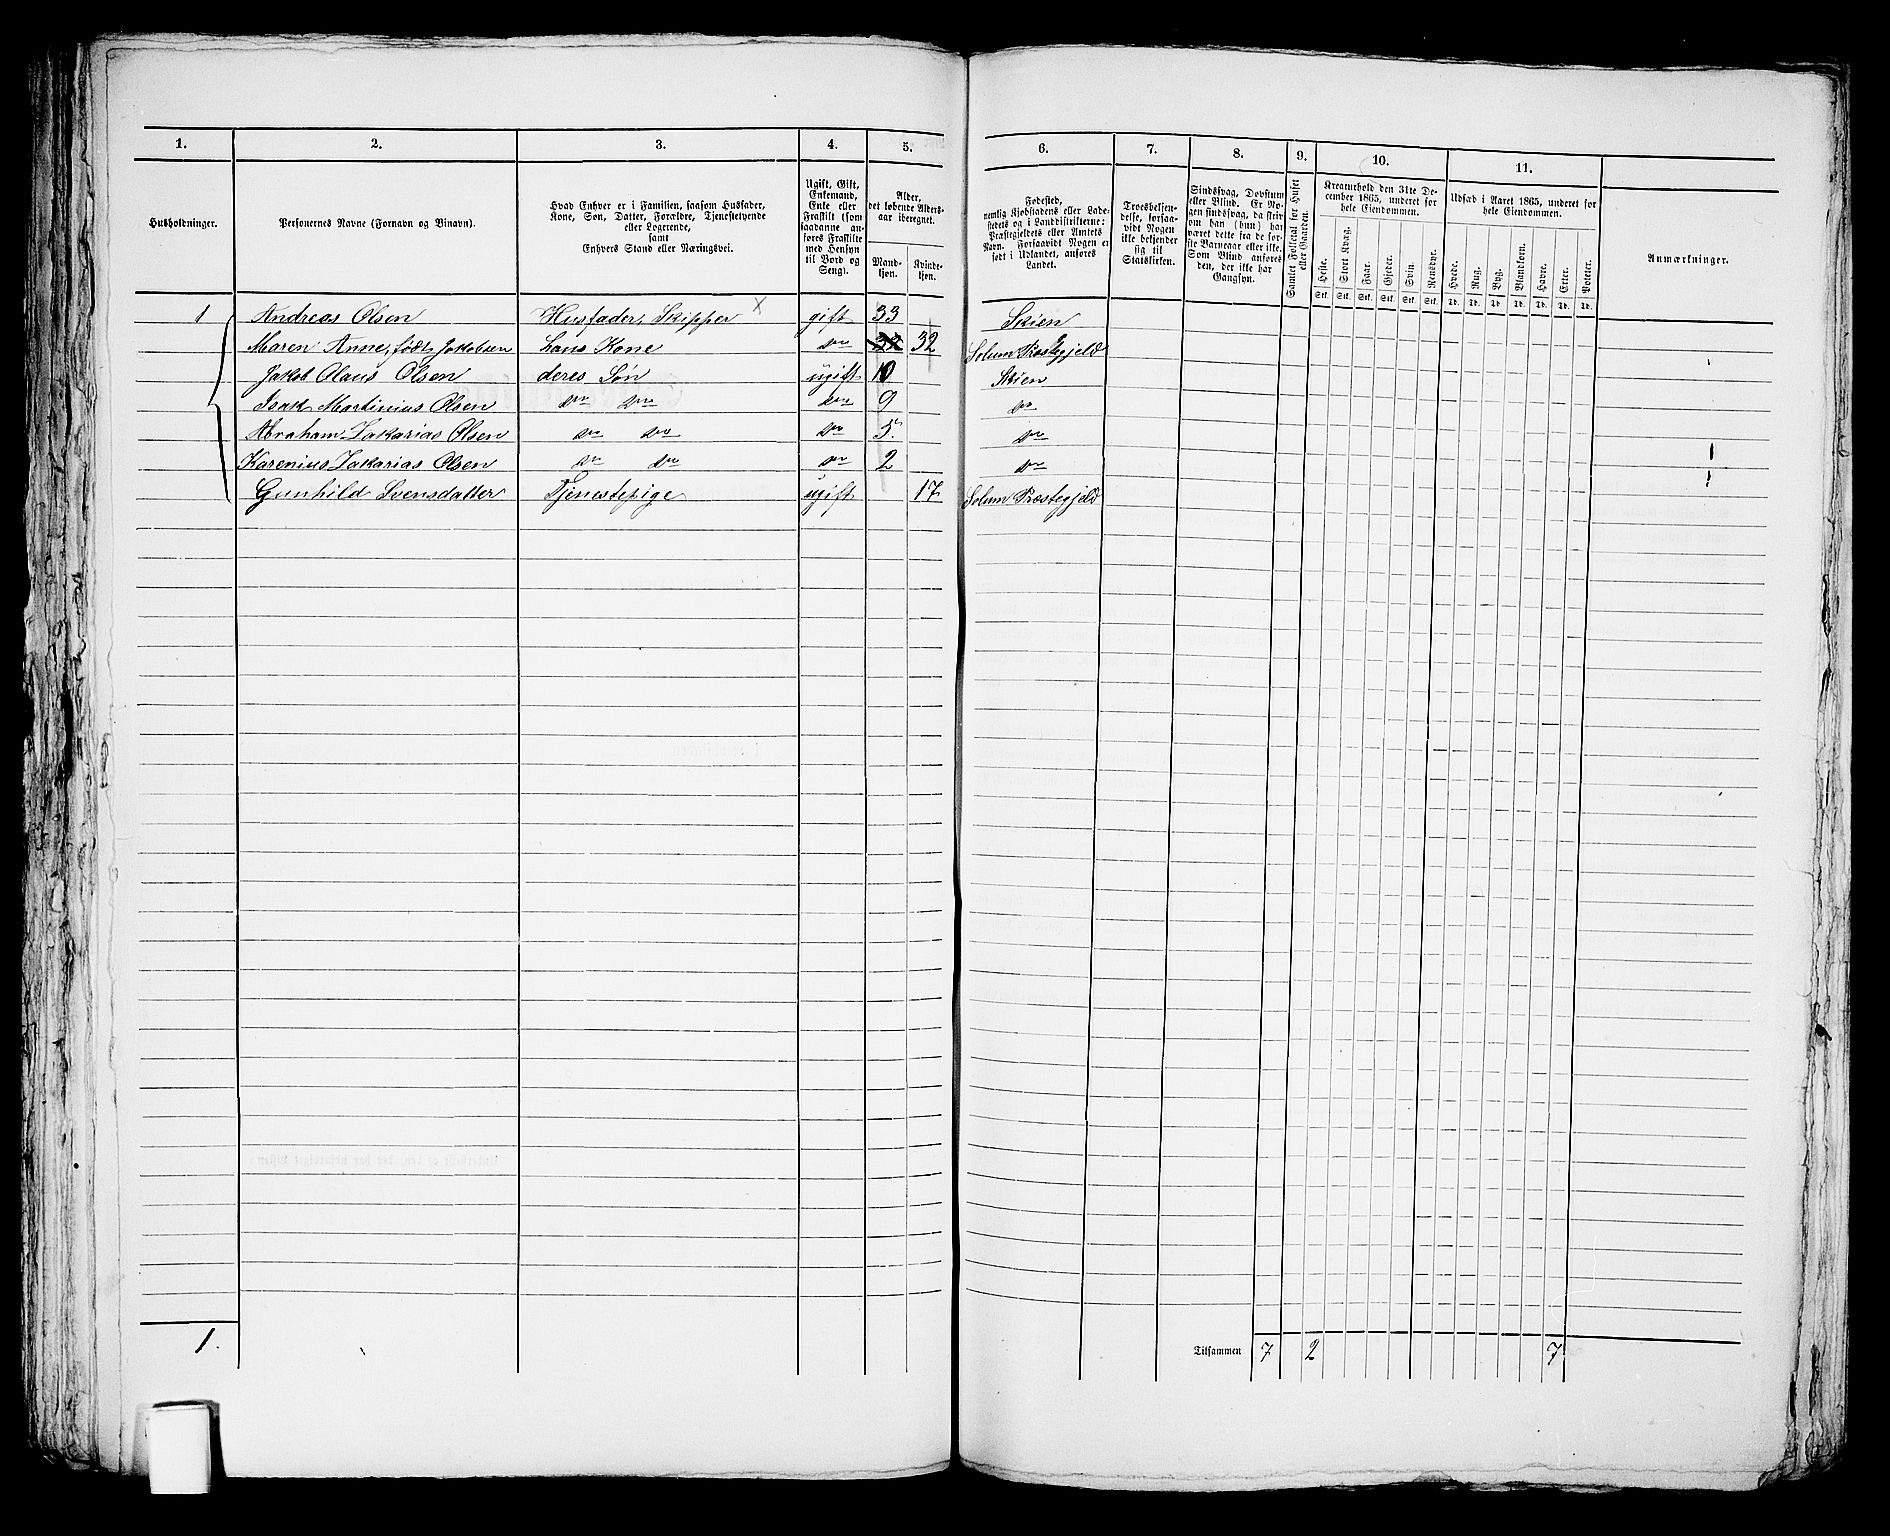 1. 2. 3. 4. 5. 6. 7. 8. 9. 10. 11.
Husholdninger.
Personernes Navne (Fornavn og Binavn).
Hvad Enhver er i Familien, saasom Husfader,
Kone, Søn, Datter, Forældre, Tjenestetyende
eller Logerende,
samt
Enhvers Stand eller Næringsvei.
Ugift, Gift,
Enkemand,
Enke eller
Fraskilt (som
saadanne an-
føres Fraskilte
med Hensyn
til Bord og
Seng).
Alder,
det løbende Alders-
aar iberegnet.
Mand-
kjøn.
Kvinde-
kjøn.
Fødested,
nemlig Kjøbstadens eller Lade-
stedets og i Landdistrikterne:
Præstegjeldets eller Amtets
Navn. Forsaavidt Nogen er
født i Udlandet, anføres
Landet.
Troesbekjen-
delse, forsaa-
vidt Nogen
ikke bekjender
sig til
Statskirken.
Sindssvag, Døvstum
eller Blind. Er No-
gen sindssvag, da skriv
om han (hun) har
været dette fra de før-
ste Barneaar eller ikke.
Som Blind anføres
den, der ikke har
Gangsyn.
Samlet Folketal for Huset
eller Gaarden.
Kreaturhold den 31te De-
cember 1865, underet for
hele Eiendommen.
Heste. Stort Kvæg. Faar. Gjeder. Svin. Rensdyr.
Stk. Stk. Stk. Stk. Stk. Stk.
Udsæd i Aaret 1865, underet for
hele Eiendommen.
Hvede. Rug. Byg. Blandkorn. Havre. Erter. Poteter.
Td. Td. Td. Td. Td. Td. Td.
Anmærkninger.
1 Andreas Olsen Husfader, Skipper x gift 33 Skien
Maren Anne, født Jakobsen hans Kone do 32 32 Solum Præstegjeld
Jakob Olaus Olsen deres Søn ugift 10 Skien
Isak Martinius Olsen do do do 9 do
Abraham Zakarias Olsen do do do 5 do
Karenius Zakarias Olsen do do do 2 do
Gunhild Svensdatter Tjenestepige ugift 17 Solum Præstegjeld
1. Tilsammen 7 2 7